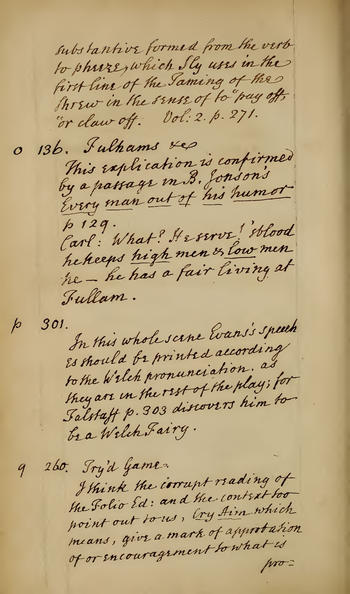 substantive formed from the verb
to pheeze, which Sly uses in the
first line of the Taming of the
Shrew in the sense of to "pay off,
"or claw off. Vol: 2. p. 271.
o 136. Fulhams &c
This explication is confirmed
by a passage in B. Jonson's
Every man out of his humor
p 129.
Carl: What? He serve! 'sblood
he keeps high men & low men
he — he has a fair living at
Fullam.
p 301.
In this whole scene Evans's speech
es should be printed according
to the Welch pronunciation. as
they are in the rest of the play; for
Falstaff p. 303 discovers him to
be a Welch Fairy.
q 260. Try'd Game.
I think the corrupt reading of
the Folio Ed: and the context too
point out to us, Cry Aim which
means, give a mark of approbation
of or encouragement to what is
pro=